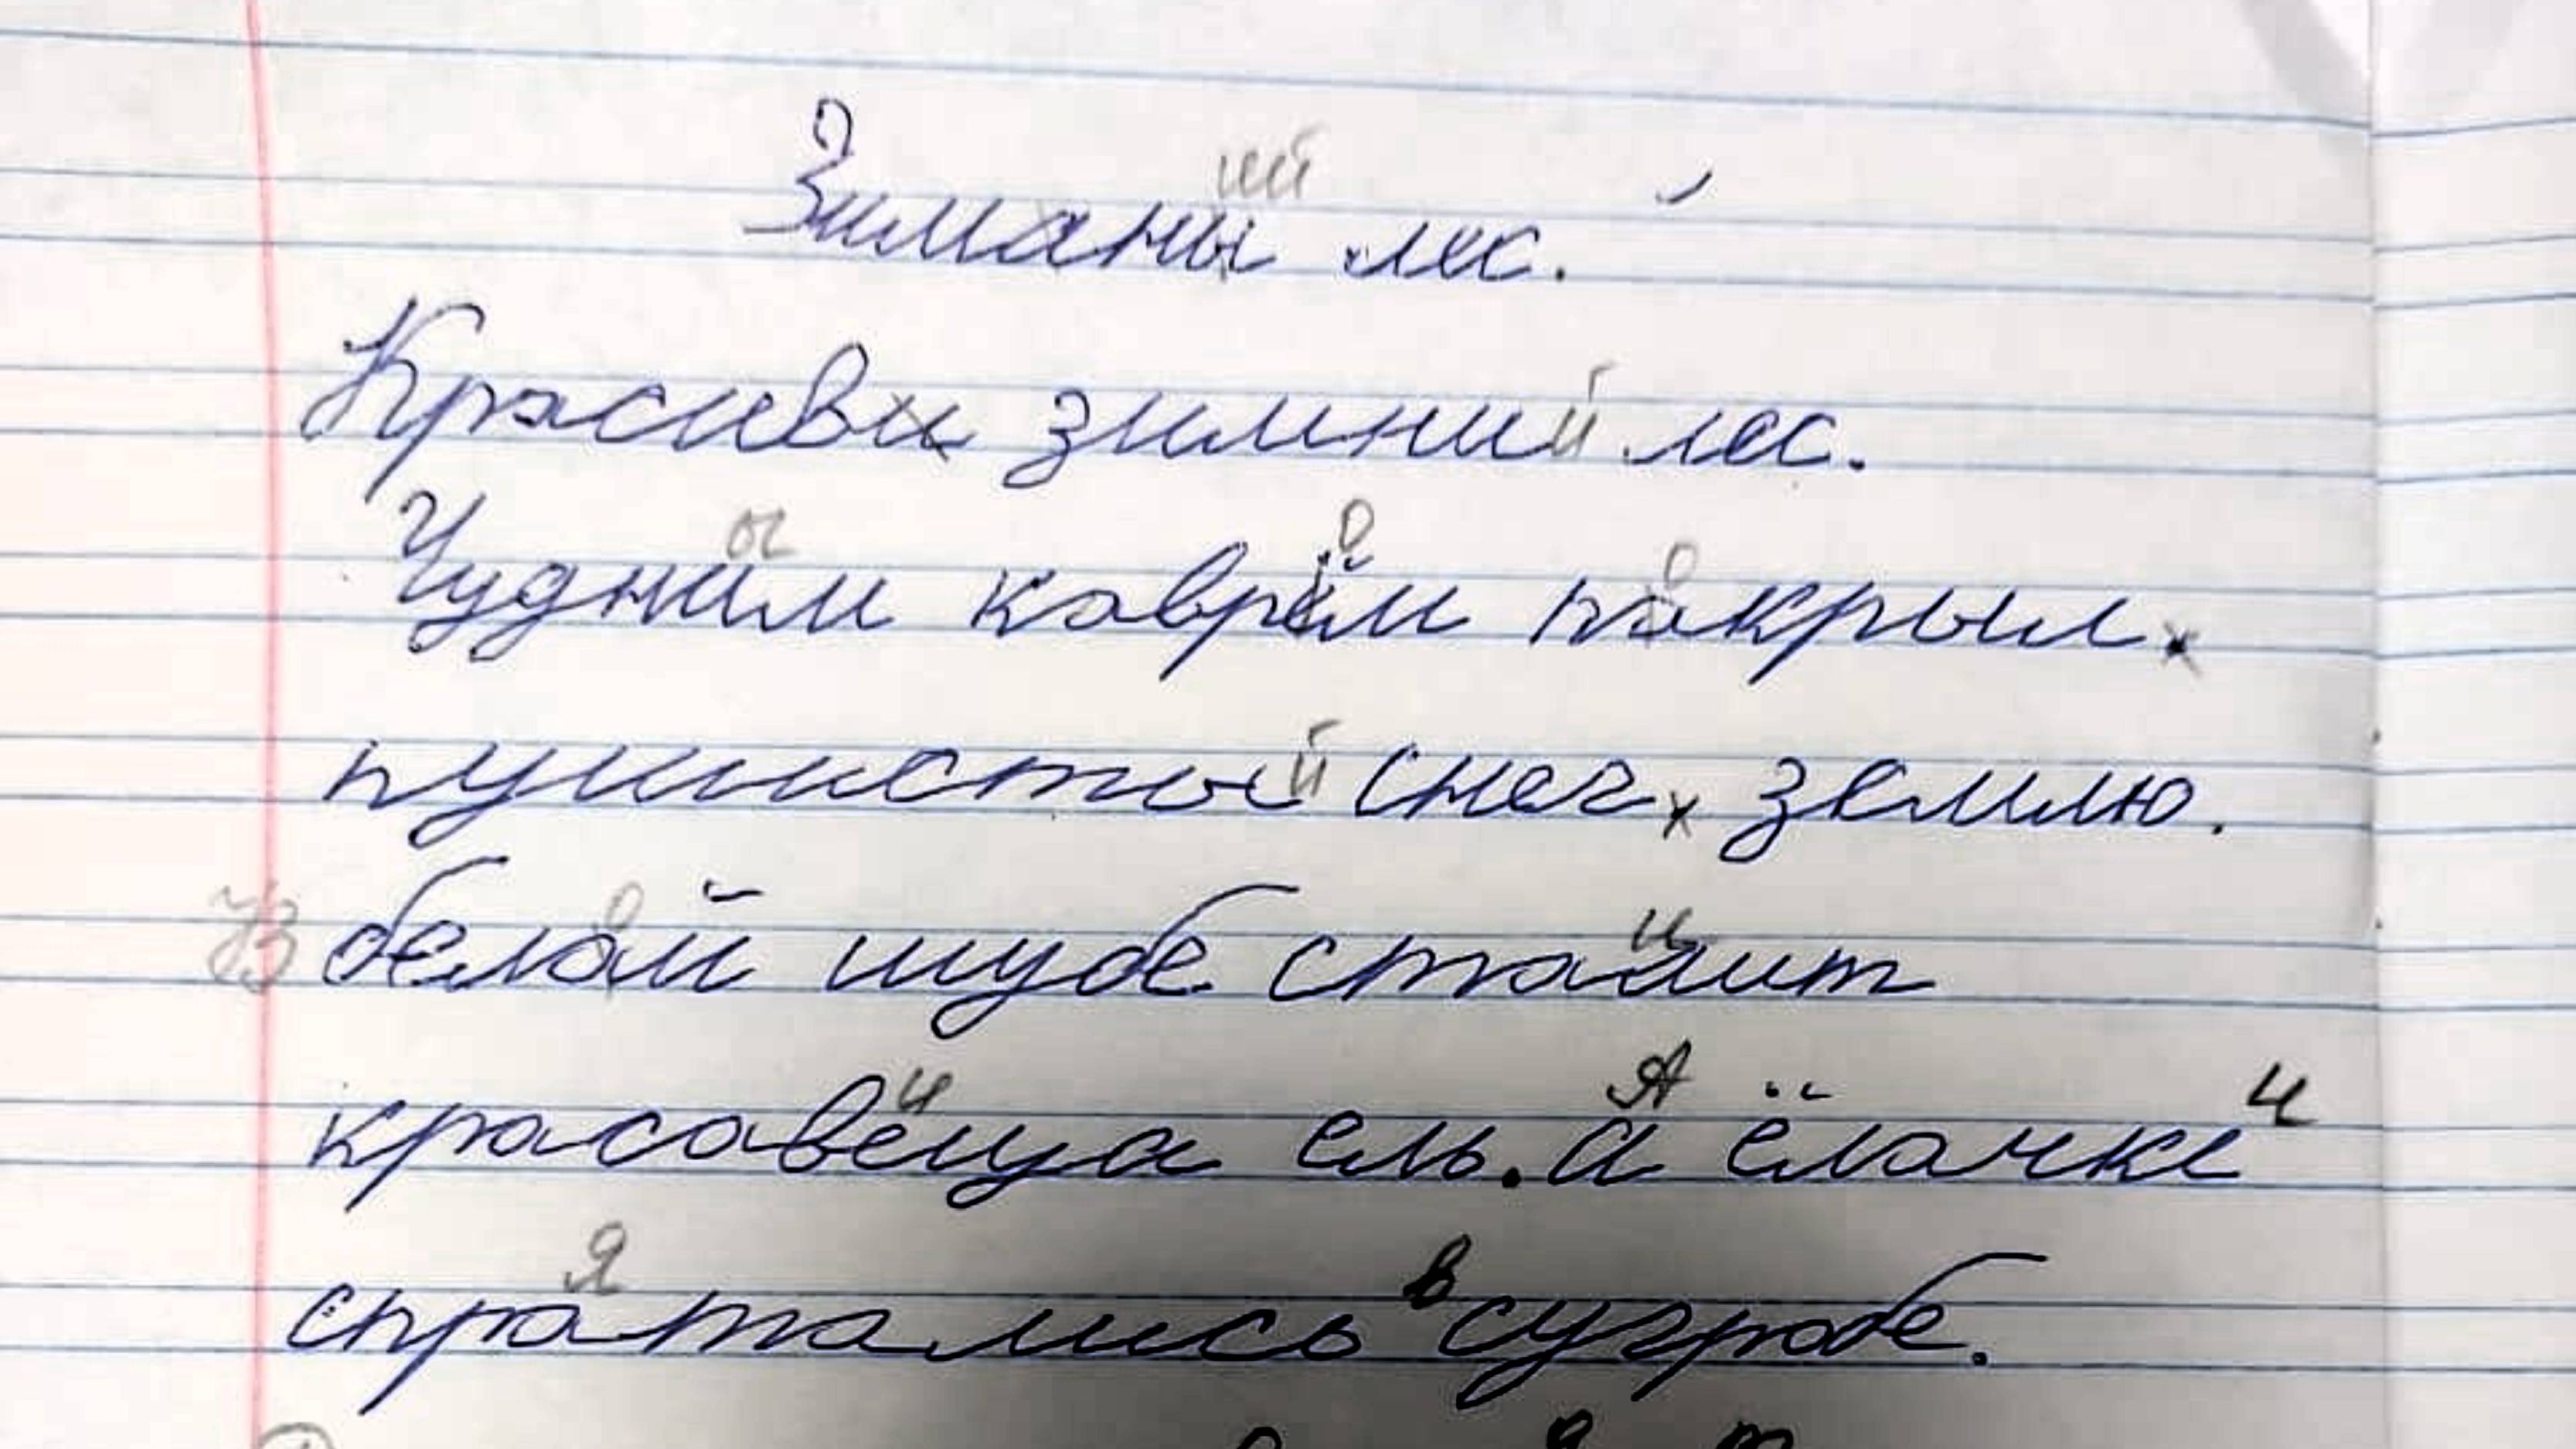 Зиманы лес.
Красиви зимни лес.
Чудним каврём пакрыл.
пушисты снег, земмлю.
белай шубе стаит
красавеца ель. а ёлачке
спратались в сугробе.